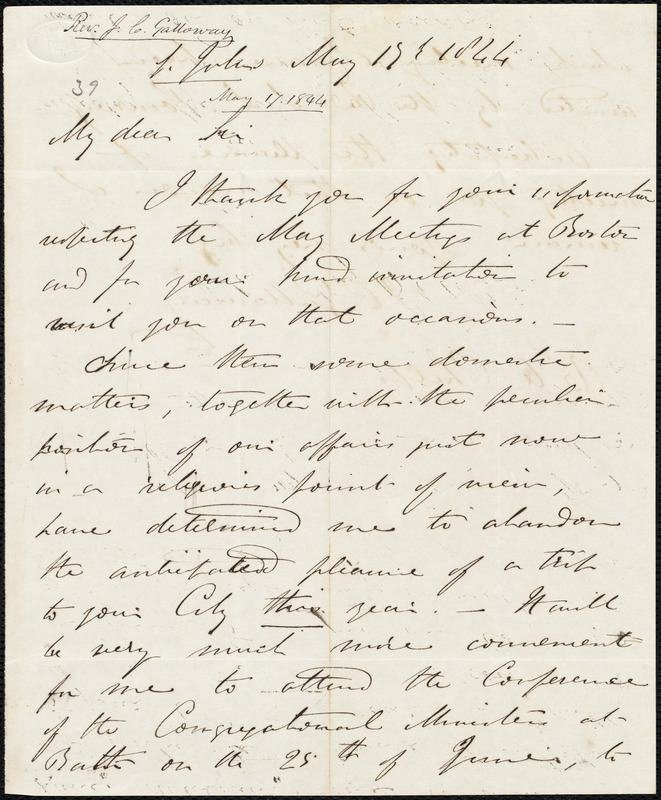 Rev. J. C. Galloway
St. Johns May 17th 1844
39
May 17. 1844
My dear Sir
I thank you for your information
respecting the May Meetings at Boston
and for your kind invitation to
visit you on that occasions. —
Since then some domestic
matters, together with the peculiar
position of our affairs just now
in a religious point of view,
have determined me to abandon
the anticipated pleasure of a trip
to your City this year. — It will
be very much more convenient
for me to attend the Conference
of the Congregational Ministers at
Bath on the 25th of June, to